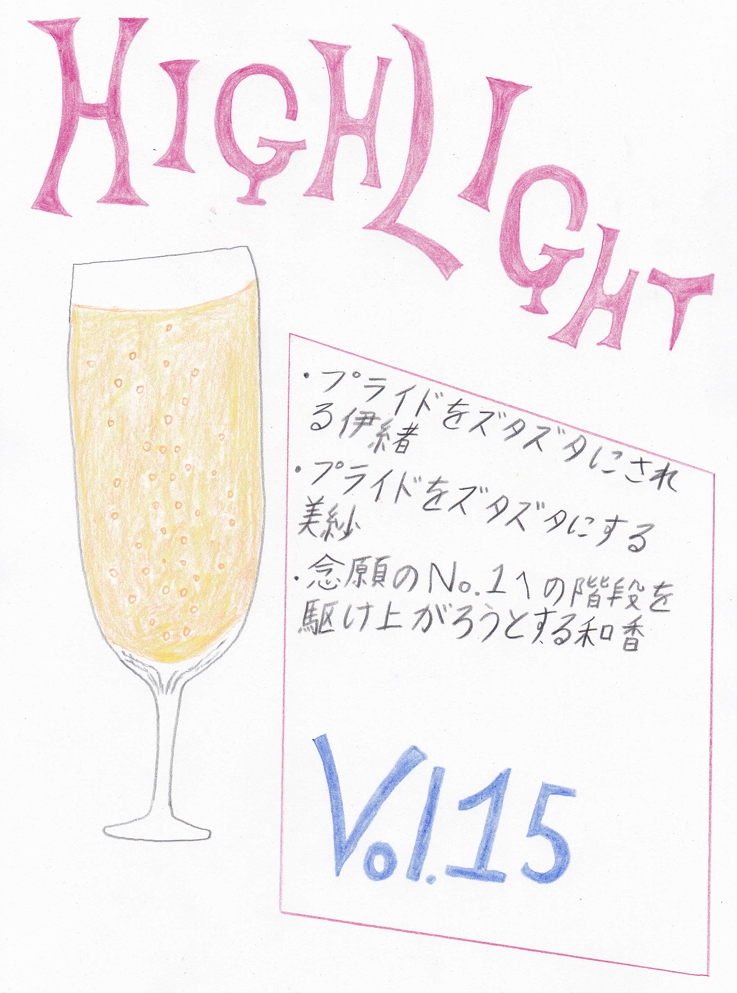 HIGHLIGHT
・プライドをズタズタにされ
る伊緒
・プライドをズタズタにする
美紗
・念願のNo.1への階段を
駆け上がろうとする和香
Vol.15